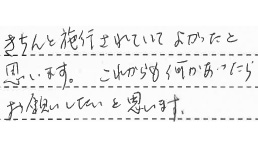 きちんと施行されていてよかったと
思います。これからも何かあったら
お願いしたいと思います。